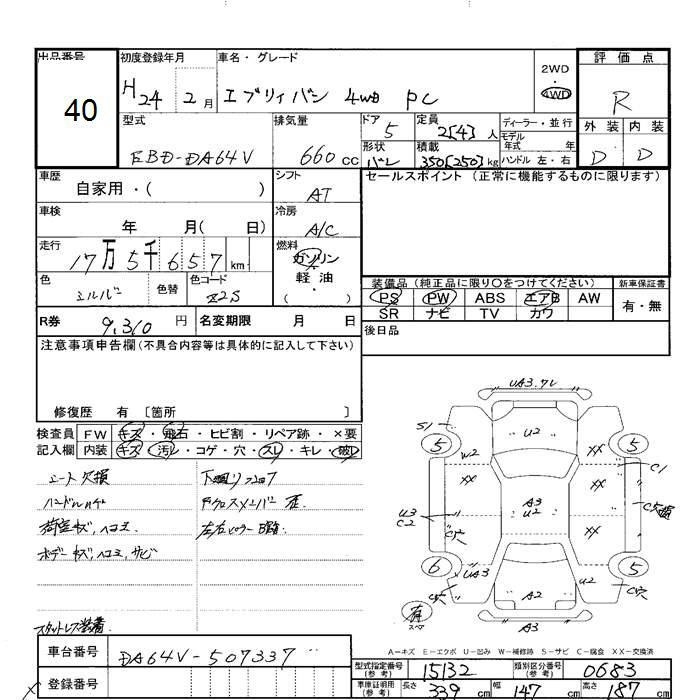 出品番号
40
初度登録年月
H24 2月
車名・グレード
エブリィバン 4WD PC
2WD
・
4WD
評価点
R
外装 内装
D D
型式
EBD-DA64V
排気量
660cc
ドア
5
定員
2[4]人
ディーラー・並行
モデル
年式 年
形状
バン
積載
350[250]kg
ハンドル 左・右
車歴
自家用・( )
シフト
AT
セールスポイント (正常に機能するものに限ります)
車検
年 月( 日)
冷房
A/C
走行
17万5千657km
燃料
ガソリン
・
軽油
( )
色
シルバー
色替
色コード
Z2S
装備品(純正品に限り〇をつけてください)
新車保証書
PS PW ABS エアB AW
SR ナビ TV カワ
有・無
R券 9,310円
名変期限 月 日
後日品
注意事項申告欄(不具合内容等は具体的に記入して下さい)
修復歴 有 〔箇所 〕
検査員 FW キズ・飛石・ヒビ割・リペア跡・×要
記入欄 内装 キズ・汚レ・コゲ・穴・スレ・キレ・破レ
シート欠損
荷室キズ,ヘコミ
ボデーキズ,ヘコミ,サビ
スタットレス装着
左右ピラー
UA3.フレ
S1
5
U2
5
W2
XX
C1
XX
A3
U2
U3
C2
C欠損
C穴
XX
6
UA3
5
U2
C穴
A2
有
スペア
A3
A=キズ E=エクボ U=凹み W=補修跡 S=サビ C=腐食 XX=交換済
車台番号
DA64V-507337
登録番号
型式指定番号
(参考)
15132
類別区分番号
(参考)
0683
車庫証明用
(参考)
長さ 339cm
幅 147cm
高さ 187cm